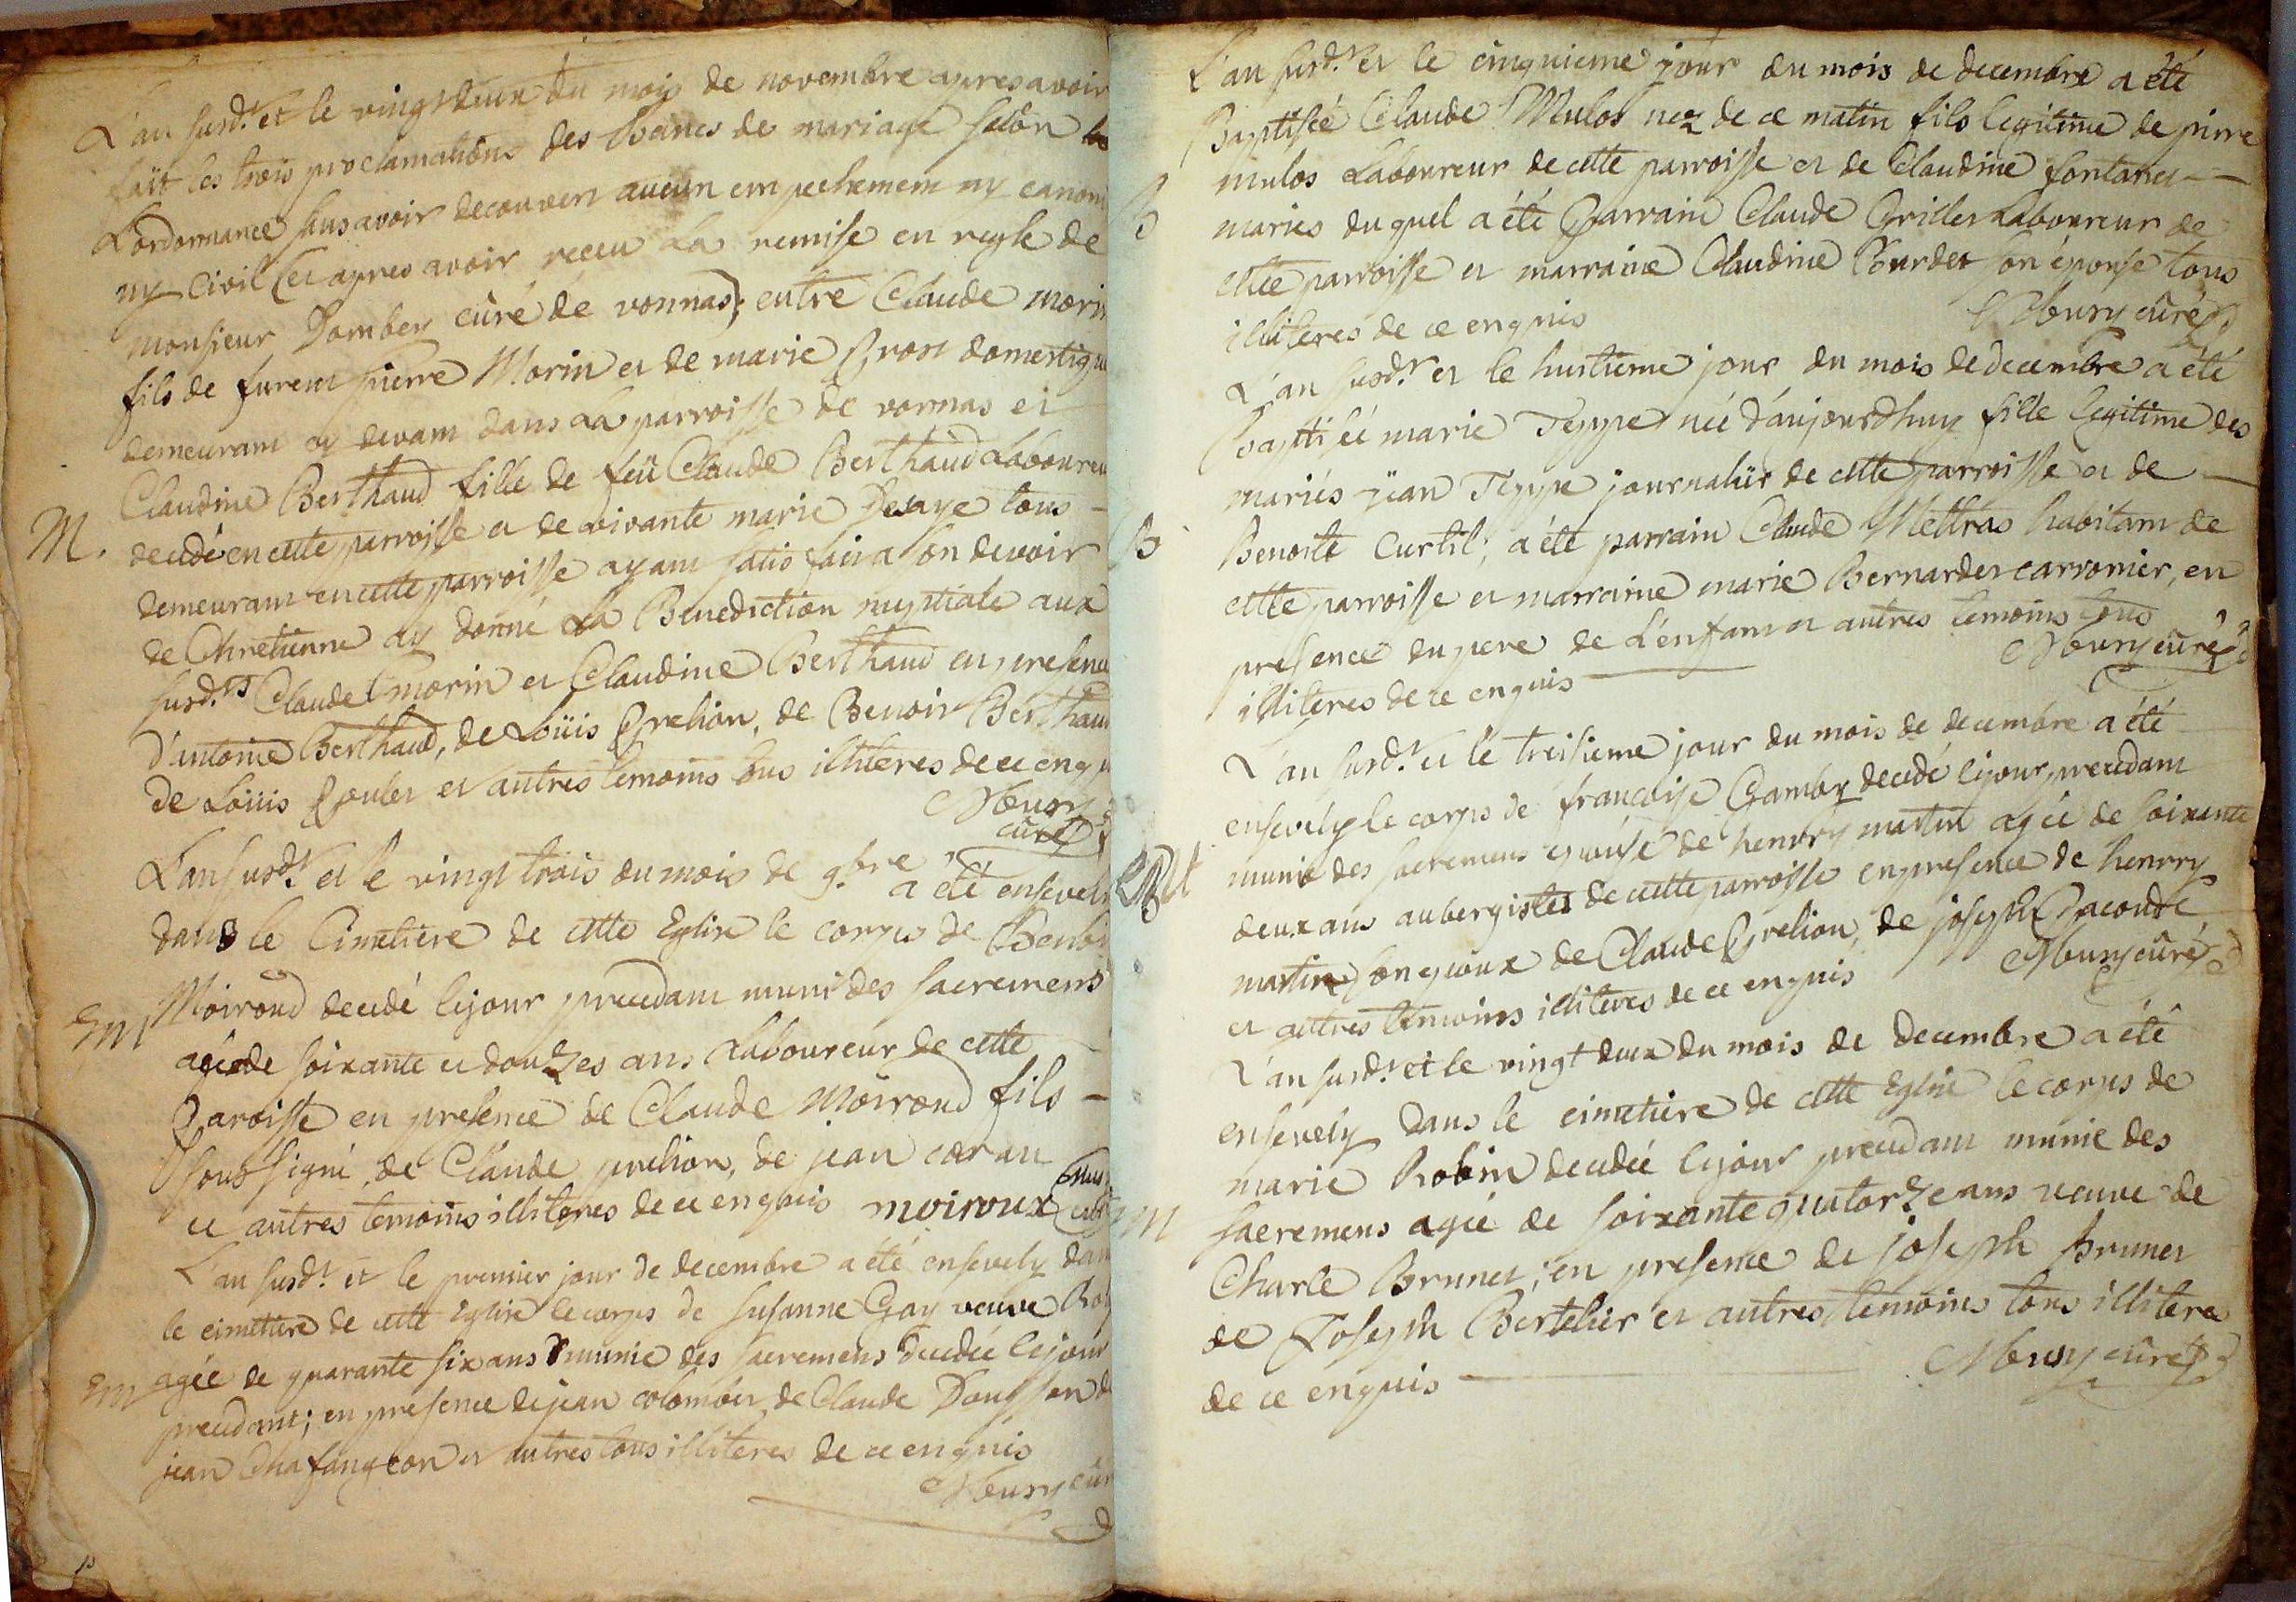 L'an susd.t et le vingtdeux du mois de novembre apres avoir
fait les trois proclamations des bancs de mariage selon
L'ordonnance sans avoir decouvert aucun empechement ny canoni
ny Civil (et apres avoir receu La remise en regle de
monsieur Dombey curé de vonnas); entre Claude morin
fils de furent pierre Morin et de marie Brost domestique
demeurant cy devant dans La parroisse de vonnas et
Claudine Berthaud fille de feü Claude Berthaud Laboureu
M.
decedé en cette parroisse et de vivante marie Desaye tous
demeurant en cette parroisse ayant satisfait a son devoir
de Chretienne ay donné La Benediction nuptiale aux
susd.ts Claude morin et Claudine Berthaud en presence
d'antoine Berthaud, de Loüis Prelion, de Benoit Berthau
de Loüis Poulet et autres temoins tous illiteres de ce enquis
Moury
curé
L'an susd.t et le vingt trois du mois de 9.bre a été ensevely
dans le Cimetiere de cette Eglise le corps de Benoi
Moiroud decedé le jour precedant muni des sacremens
Em
agé de soixante et douzes ans Laboureur de cette
Paroisse en presence de Claude Moiroud fils
soussigné, de Claude prelion, de jean caran
et autres temoins illiteres de ce enquis moiroux
L'an susd.t et le premier jour de decembre a été ensevely dan
le cimetiere de cette Eglise le corps de susanne Gay veuve
Em
agée de quarante six ans munie des sacremens decedée le jour
precedant; en presence de jean colomber, de Claude
jean Chafangeon et autres tous illiteres de ce enquis
Moury cur
L'an susd.t et le cinquieme jour du mois de decembre a été
Baptisée Claude Mulos nez de ce matin fils legitime de pierre
mulos Laboureur de cette parroisse et de Claudine fontanet
B
maries duquel a été Parrain Claude Grillet Laboureur de
cette parroisse et marraine Claudine Bourdet son épouse tous
illiteres de ce enquis
Moury curé
L'an susd.t et le huitieme jour du mois de decembre a été
Baptisée marie Teppe née d'aujourdhuy fille legitime des
mariés jëan Teppe journalier de cette parroisse et de
B
Benoite Curtil; a été parrain Claude Mettras habitant de
cette parroisse et marraine marie Bernardet carronier, en
presence du pere de L'enfant et autres temoins tous
illiteres de ce enquis
Moury curé
L'an susd.t et le treisieme jour du mois de decembre a été
ensevely le corps de francoise Gamby decedé le jour precedant
munie des sacremens epouse de henrry martin agée de soixante
deux ans aubergistes de cette parroisse en presence de henrry
martin son epoux de Claude Prelion, de joseph Laconde
et autres temoins illiteres de ce enquis
Moury curé
L'an susd.t et le vingt deux du mois de decembre a été
ensevely dans le cimetiere de cette Eglise le corps de
marie Robin decedée le jour precedant munie des
M
sacremens agée de soixante quatorze ans veuve de
Charle Brunet; en presence de joseph Brunet
de Joseph Bertelier et autres temoins tous illitere
de ce enquis
Moury curé